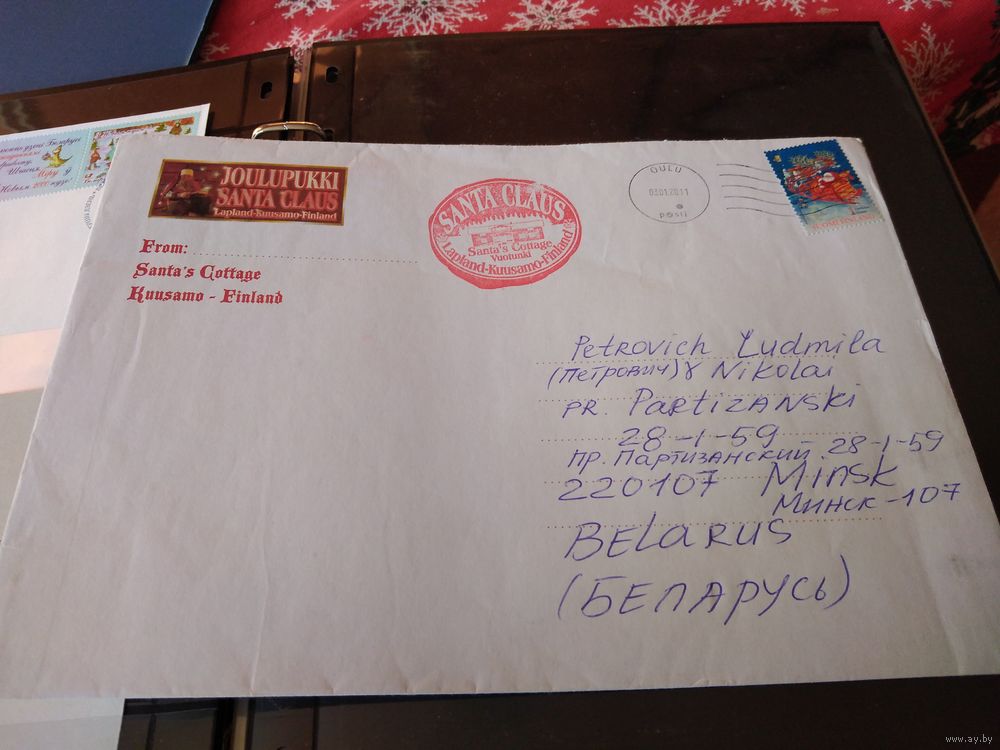 JOULUPUKKI
SANTA CLAUS
Lapland-Kuusamo-Finland
From:
Santa's Cottage
Kuusamo - Finland
SANTA CLAUS
Santa's Cottage
Vuotunki
Lapland-Kuusamo-Finland
OULU
03.01.2011
POSTI
Petrovich Ludmila
(Петрович) & Nikolai
PR. Partizanski
28-1-59
пр. Партизанский 28-1-59
220107 Minsk
Минск-107
BELARUS
(БЕЛАРУСЬ)
www.ay.by